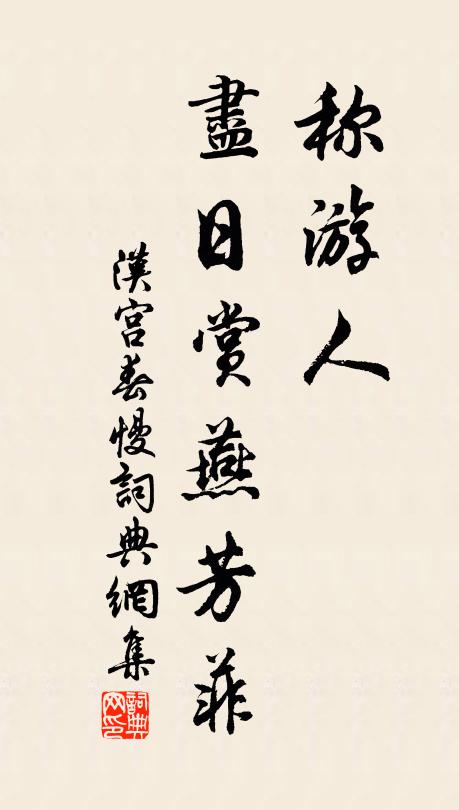 称游人
盡日賞燕芳菲
漢宮春慢詞典網集
詞典网印